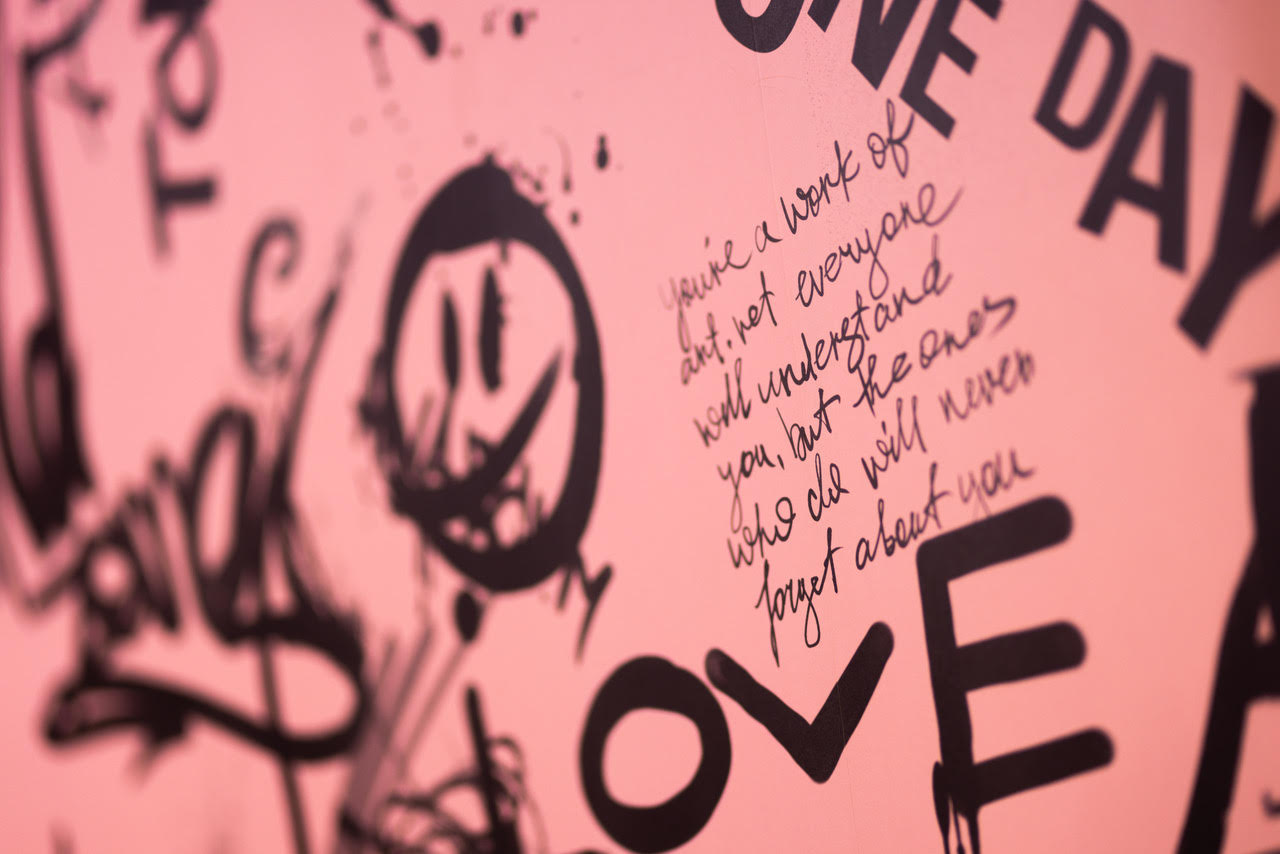 ONE DAY
you're a work of
art. not everyone
will understand
you, but the ones
who do will never
forget about you
OVE
TO